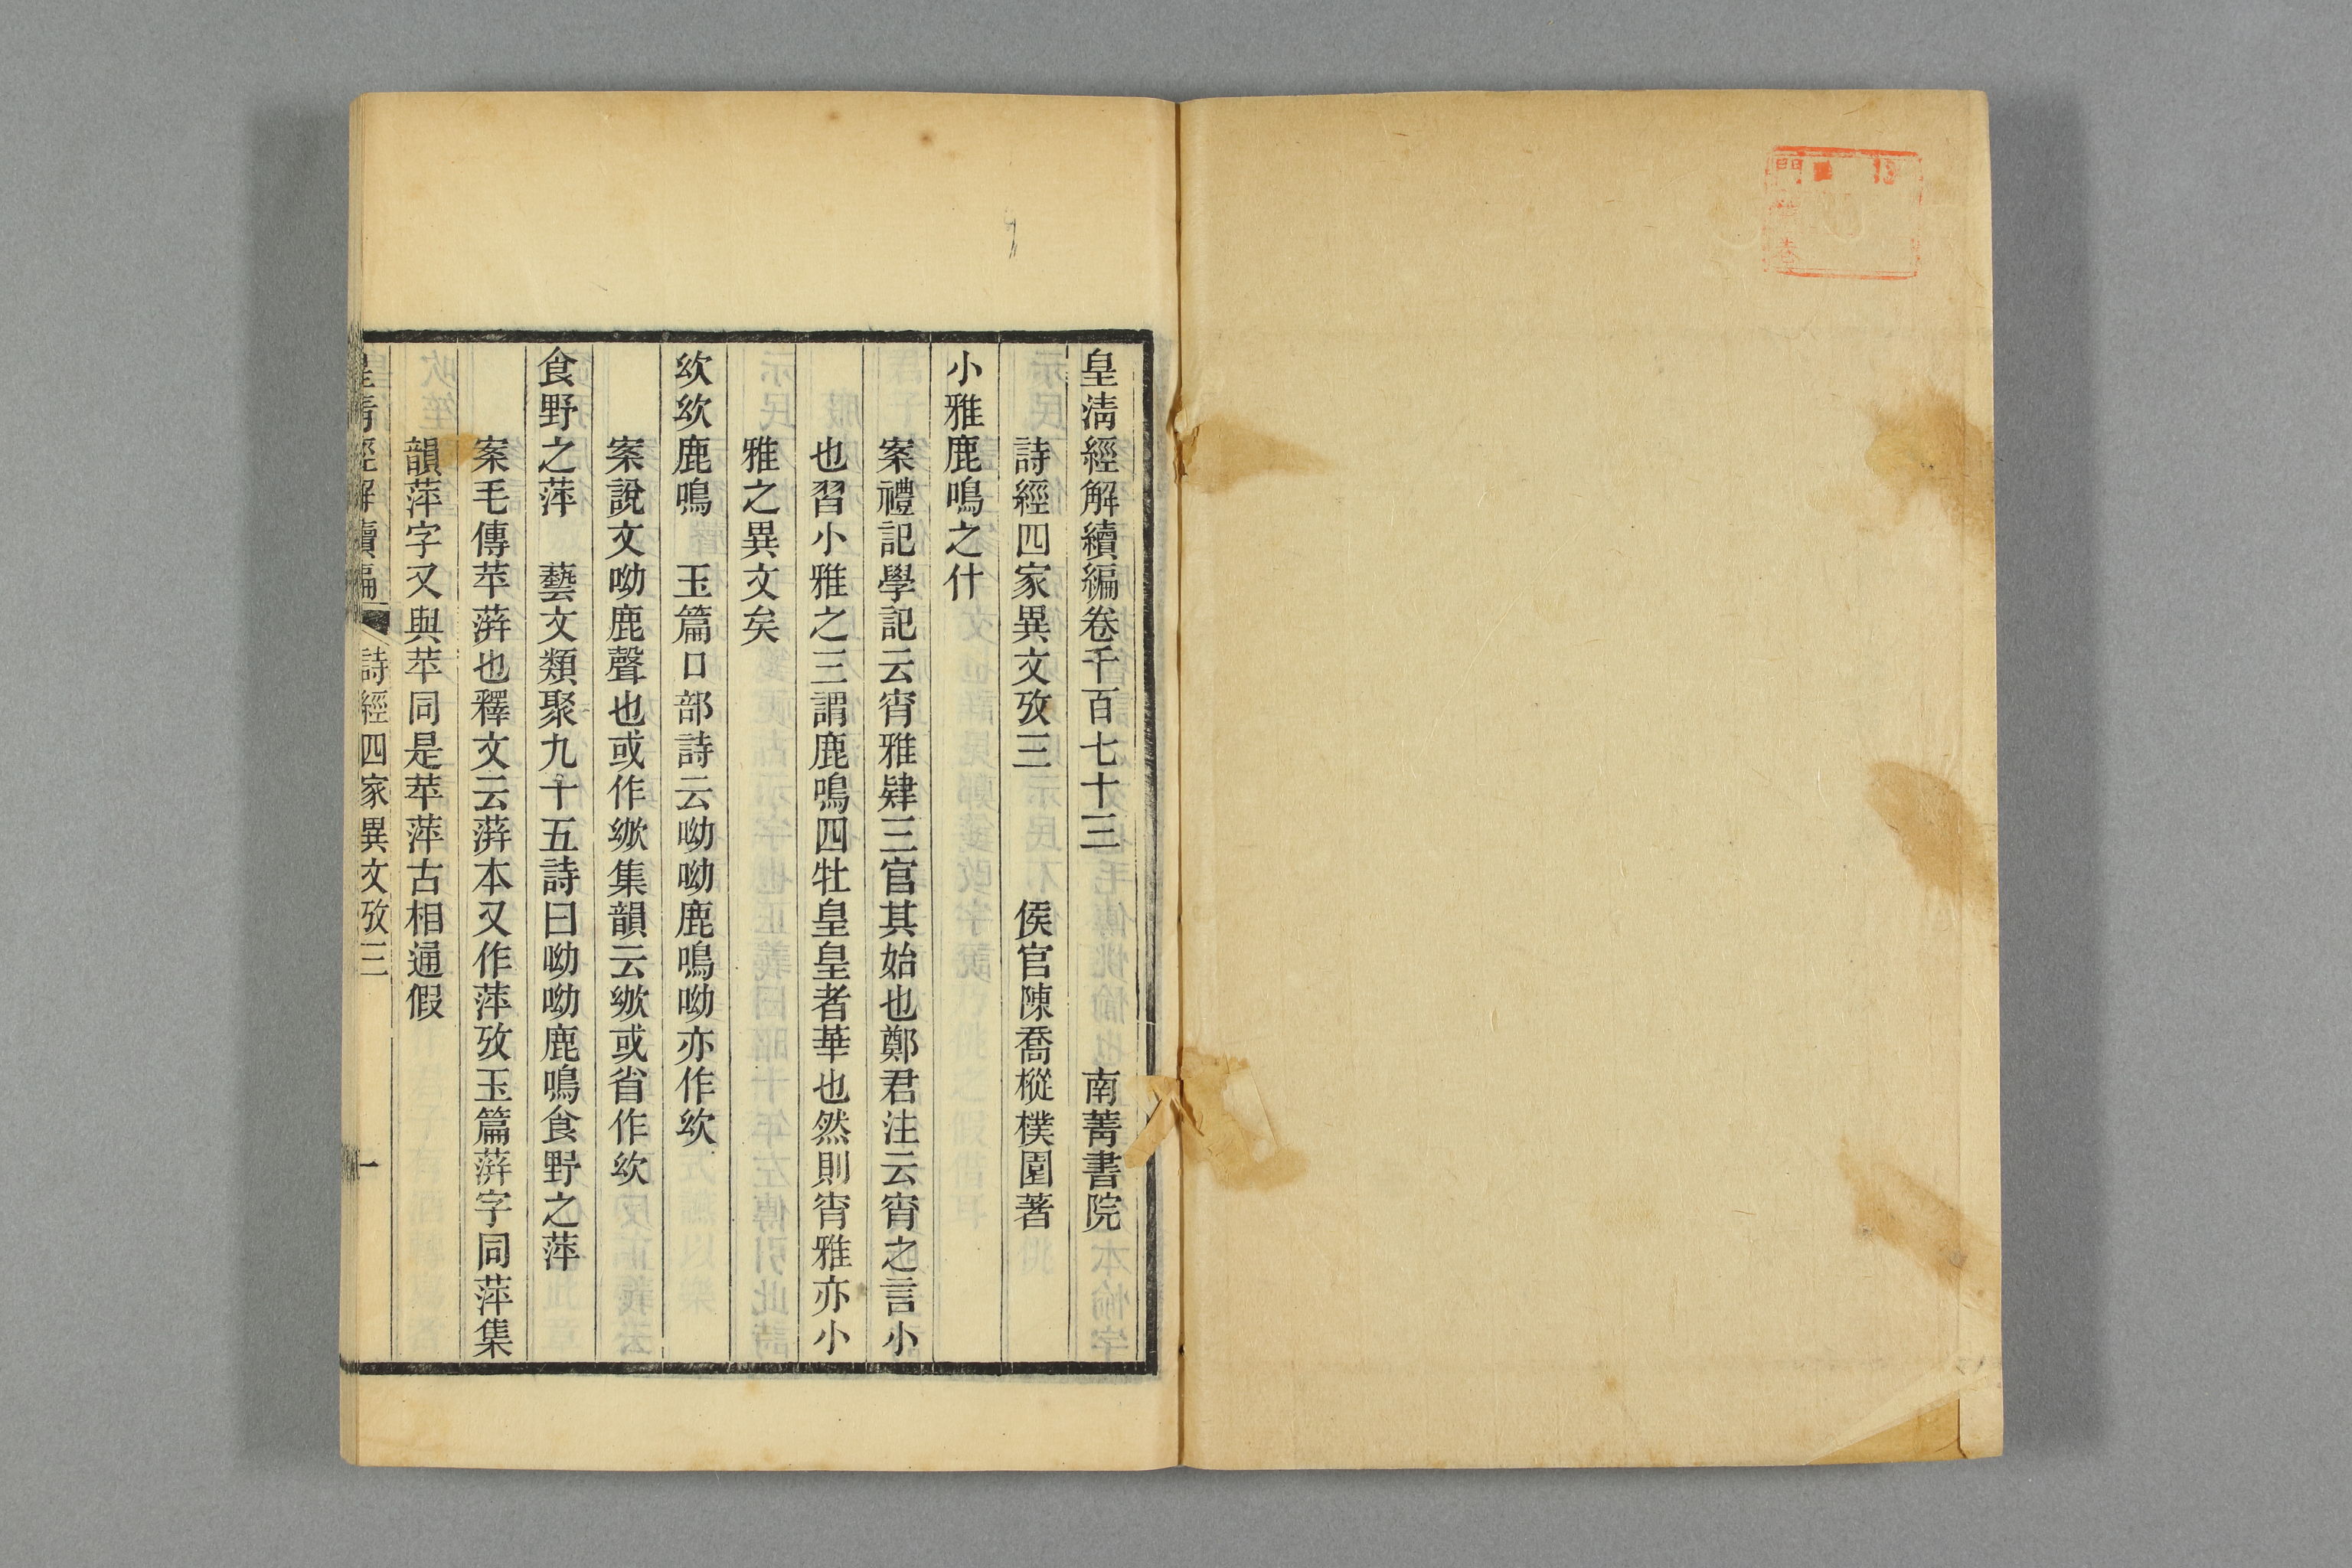 皇淸經解續編卷千百七十三　南菁書院
詩經四家異文攷三　侯官陳喬樅樸園著
小雅鹿鳴之什
案禮記學記云宵雅肄三官其始也鄭君注云宵之言小
也習小雅之三謂鹿鳴四牡皇皇者華也然則宵雅亦小
雅之異文矣
欸欸鹿鳴　玉篇口部詩云呦呦鹿鳴呦亦作欸
案說文呦鹿聲也或作㶭集韻云㶭或省作欸
食野之蓱　藝文類聚九十五詩曰呦呦鹿鳴食野之萍
案毛傳苹蓱也釋文云蓱本又作萍攷玉篇蓱字同萍集
韻萍字又與苹同是苹萍古相通假
皇清經解續編　詩經四家異文攷三　一
門